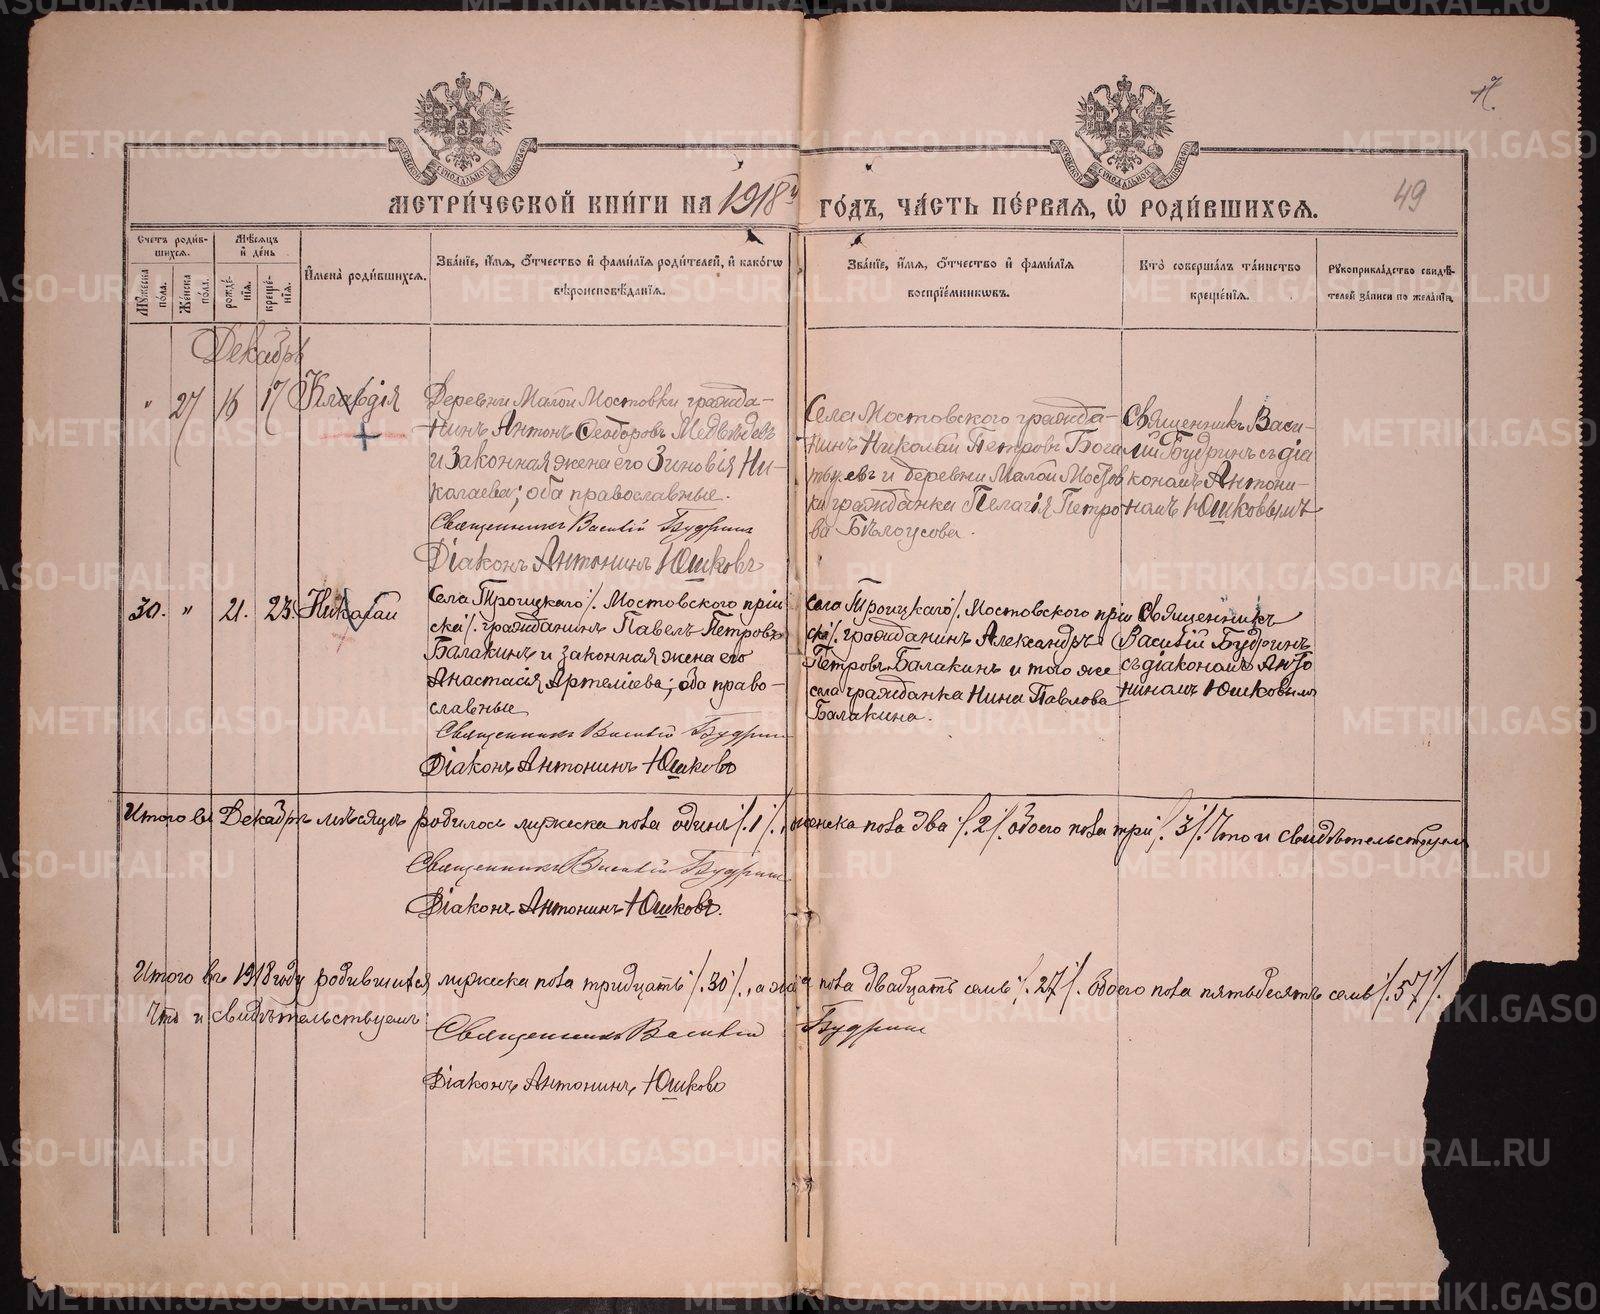 МЕТРИ́ЧЕСКОЙ КНИ́ГИ НА 1918й ГО́ДЪ, ЧА́СТЬ ПЕ́РВАЯ, Ѡ РОДИ́ВШИХСЯ.
49
Счетъ роди́вшихся.
Му́жеска по́ла.
Же́нска по́ла.
Мѣ́сяцъ и де́нь
рожде́нїя.
креще́нїя.
Имена̀ роди́вшихся.
Зва́нїе, и́мя, о́тчество и фами́лїя роди́телей, и како́гѡ вѣроисповѣ́данїя.
Зва́нїе, и́мя, о́тчество и фами́лїя воспрїе́мникѡвъ.
Кто̀ соверша́лъ та́инство креще́нїя.
Рукоприкла́дство свидѣ́телей за́писи по жела́нїю.
Декабрь
" 27 16 17 Клавдія
Деревни Малой Мостовки гражда-
нинъ Антонъ Ѳеодоровъ Медвѣдевъ
и законная жена его Зиновія Ни-
колаева; оба православные.
Священникъ Василій Будринъ
Діаконъ Антонинъ Юшковъ
Села Мостовского гражда-
нинъ Николай Петровъ Бога
тыревъ и деревни Малой Мостов
ки гражданка Пелагія Петро
ва Бѣлоусова.
Священникъ Васи-
лій Будринъ съ діа
кономъ Антони-
номъ Юшковымъ
30. " 21. 23. Николай
Села Троицкаго /. Мостовского прій
ска /. гражданинъ Павелъ Петровъ
Балакинъ и законная жена его
Анастасія Артеміева; оба право-
славные
Священникъ Василій Будринъ
Діаконъ Антонинъ Юшковъ
Села Троицкаго /. Мостовского прій
ска /. гражданинъ Александръ
Петровъ Балакинъ и того же
села гражданка Нина Павлова
Балакина.
Священникъ
Василій Будринъ
съ діакономъ Анто
ниномъ Юшковымъ
Итого въ Декабрѣ мѣсяцѣ родилось мужеска пола одинъ /. 1 /., женска пола два /. 2 /. обоего пола три /. 3 /. Что и свидѣтельствуемъ
Священникъ Василій Будринъ
Діаконъ Антонинъ Юшковъ.
Итого въ 1918 году родившихся мужеска пола тридцать /. 30 /., а пола двадцать семь /. 27 /. обоего пола пятьдесятъ семь /. 57 /.
Что и свидѣтельствуемъ:
Священникъ Василій Будринъ
Діаконъ Антонинъ Юшковъ
METRIKI.GASO-URAL.RU